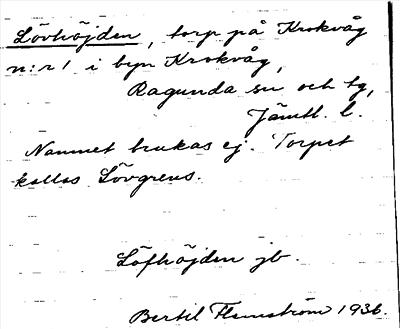 Lövhöjden, torp på Krokvåg
n:r 1 i byn Krokvåg,
Ragunda sn och tg,
Jämtl. l.
Namnet brukas ej. Torpet
kallas Lövgrens.
Löfhöjden jb.
Bertil Flemström 1936.